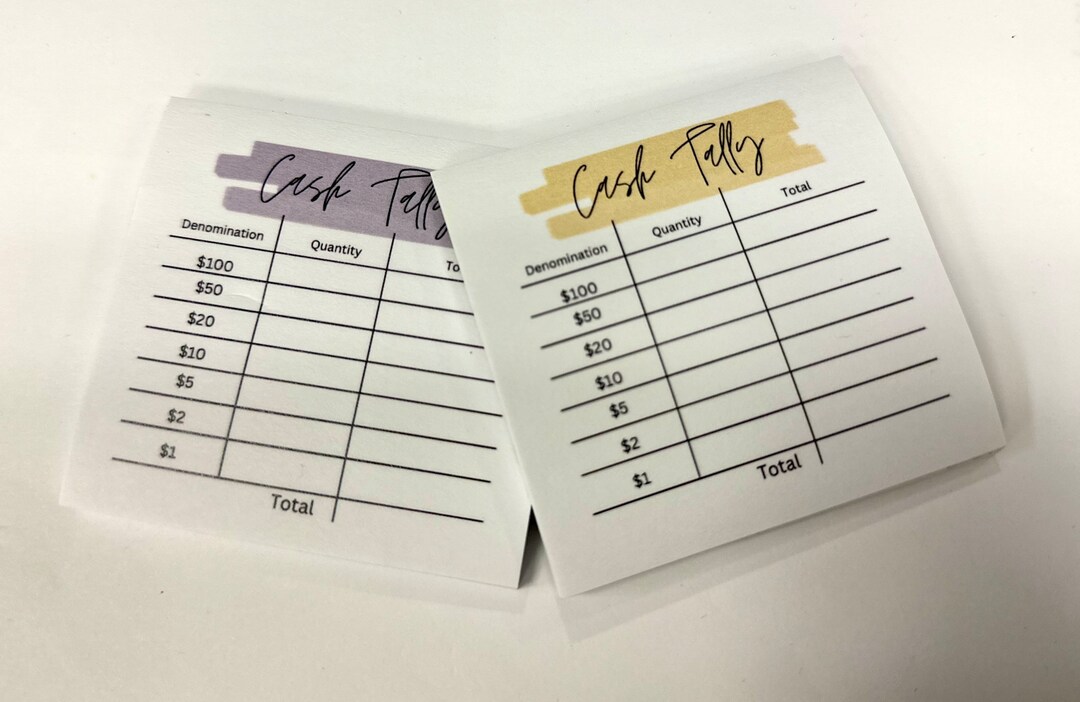 Cash Tally
Denomination Quantity To
$100
$50
$20
$10
$5
$2
$1
Total
Cash Tally
Denomination Quantity Total
$100
$50
$20
$10
$5
$2
$1
Total